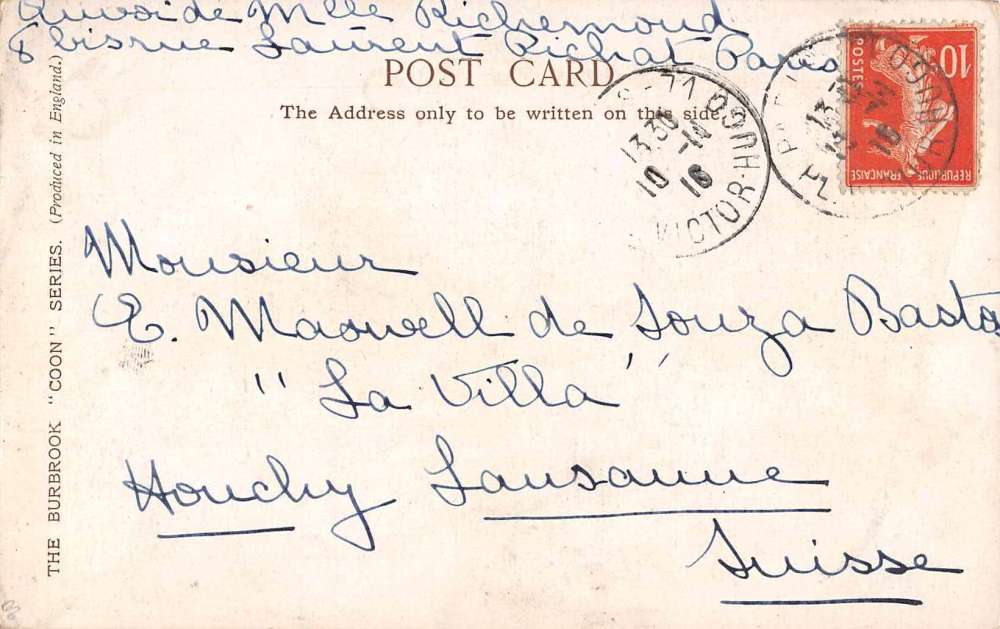 Envoi de Mlle Richemond
8 bis rue Laurent Pichat Paris
POST CARD
The Address only to be written on this side.
Monsieur
E. Maxwell de Souza Basto
"La Villa"
Houchy Lausanne
Suisse
THE BURBROOK "COON" SERIES. (Produced in England.)
10
POSTES
REPUBLIQUE FRANÇAISE
13 30
10 - 11
16
VICTOR·HUGO
13 30
16